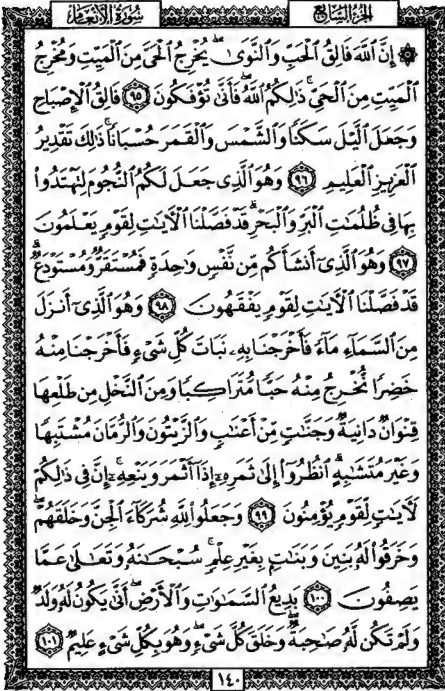 الجزء السابع
سورة الأنعام
۞ إِنَّ ٱللَّهَ فَالِقُ ٱلۡحَبِّ وَٱلنَّوَىٰۖ يُخۡرِجُ ٱلۡحَيَّ مِنَ ٱلۡمَيِّتِ وَمُخۡرِجُ
ٱلۡمَيِّتِ مِنَ ٱلۡحَيِّۚ ذَٰلِكُمُ ٱللَّهُۖ فَأَنَّىٰ تُؤۡفَكُونَ ٩٥ فَالِقُ ٱلۡإِصۡبَاحِ
وَجَعَلَ ٱلَّيۡلَ سَكَنٗا وَٱلشَّمۡسَ وَٱلۡقَمَرَ حُسۡبَانٗاۚ ذَٰلِكَ تَقۡدِيرُ
ٱلۡعَزِيزِ ٱلۡعَلِيمِ ٩٦ وَهُوَ ٱلَّذِي جَعَلَ لَكُمُ ٱلنُّجُومَ لِتَهۡتَدُواْ
بِهَا فِي ظُلُمَٰتِ ٱلۡبَرِّ وَٱلۡبَحۡرِۗ قَدۡ فَصَّلۡنَا ٱلۡأٓيَٰتِ لِقَوۡمٖ يَعۡلَمُونَ
٩٧ وَهُوَ ٱلَّذِيٓ أَنشَأَكُم مِّن نَّفۡسٖ وَٰحِدَةٖ فَمُسۡتَقَرّٞ وَمُسۡتَوۡدَعٞۗ
قَدۡ فَصَّلۡنَا ٱلۡأٓيَٰتِ لِقَوۡمٖ يَفۡقَهُونَ ٩٨ وَهُوَ ٱلَّذِيٓ أَنزَلَ
مِنَ ٱلسَّمَآءِ مَآءٗ فَأَخۡرَجۡنَا بِهِۦ نَبَاتَ كُلِّ شَيۡءٖ فَأَخۡرَجۡنَا مِنۡهُ
خَضِرٗا نُّخۡرِجُ مِنۡهُ حَبّٗا مُّتَرَاكِبٗا وَمِنَ ٱلنَّخۡلِ مِن طَلۡعِهَا
قِنۡوَانٞ دَانِيَةٞ وَجَنَّٰتٖ مِّنۡ أَعۡنَابٖ وَٱلزَّيۡتُونَ وَٱلرُّمَّانَ مُشۡتَبِهٗا
وَغَيۡرَ مُتَشَٰبِهٍۗ ٱنظُرُوٓاْ إِلَىٰ ثَمَرِهِۦٓ إِذَآ أَثۡمَرَ وَيَنۡعِهِۦٓۚ إِنَّ فِي ذَٰلِكُمۡ
لَأٓيَٰتٖ لِّقَوۡمٖ يُؤۡمِنُونَ ٩٩ وَجَعَلُواْ لِلَّهِ شُرَكَآءَ ٱلۡجِنَّ وَخَلَقَهُمۡۖ
وَخَرَقُواْ لَهُۥ بَنِينَ وَبَنَٰتِۭ بِغَيۡرِ عِلۡمٖۚ سُبۡحَٰنَهُۥ وَتَعَٰلَىٰ عَمَّا
يَصِفُونَ ١٠٠ بَدِيعُ ٱلسَّمَٰوَٰتِ وَٱلۡأَرۡضِۖ أَنَّىٰ يَكُونُ لَهُۥ وَلَدٞ
وَلَمۡ تَكُن لَّهُۥ صَٰحِبَةٞۖ وَخَلَقَ كُلَّ شَيۡءٖۖ وَهُوَ بِكُلِّ شَيۡءٍ عَلِيمٞ ١٠١
١٤٠